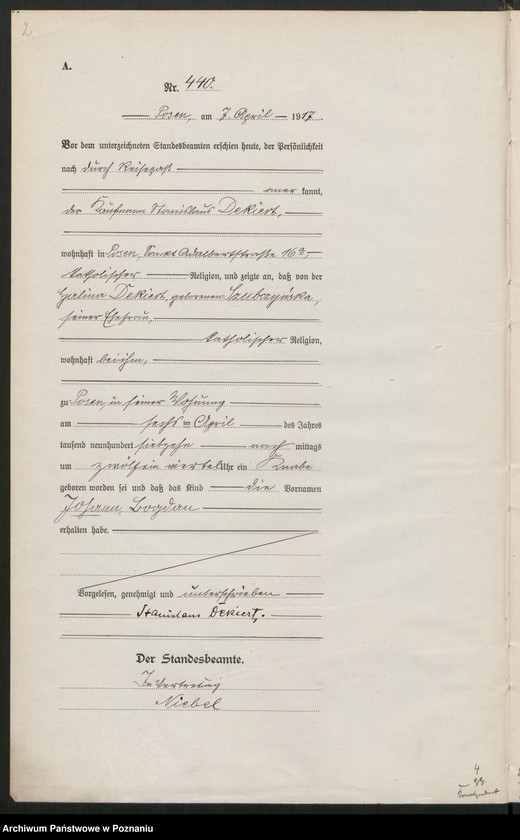 2.
A.
Nr. 440.
Posen, am 7. April 1917.
Vor dem unterzeichneten Standesbeamten erschien heute, der Persönlichkeit
nach durch Reisepaß
aner kannt,
der Kaufmann Stanislaus Dekiert,
wohnhaft in Posen, Sankt Adalbertstraße 16a,
katholischer Religion, und zeigte an, daß von der
Dekiert, geborenen Szubczyńska,
seiner Ehefrau,
katholischer Religion,
wohnhaft bei ihm,
zu Posen, in seiner Wohnung
am sechsten April des Jahres
tausend neunhundert siebzehn nach mittags
um zwölfein viertel Uhr ein Knabe
geboren worden sei und daß das Kind die Vornamen
Johann, Bogdan
erhalten habe.
Vorgelesen, genehmigt und unterschrieben
Stanislaus Dekiert.
Der Standesbeamte.
In Vertretung
Niebel
4
Archiwum Państwowe w Poznaniu